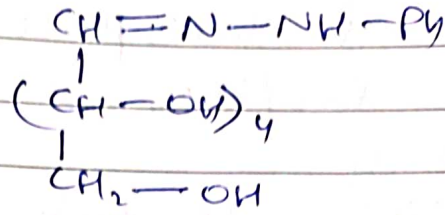 CH=N-NH-Ph
(CH-OH)4
CH2-OH